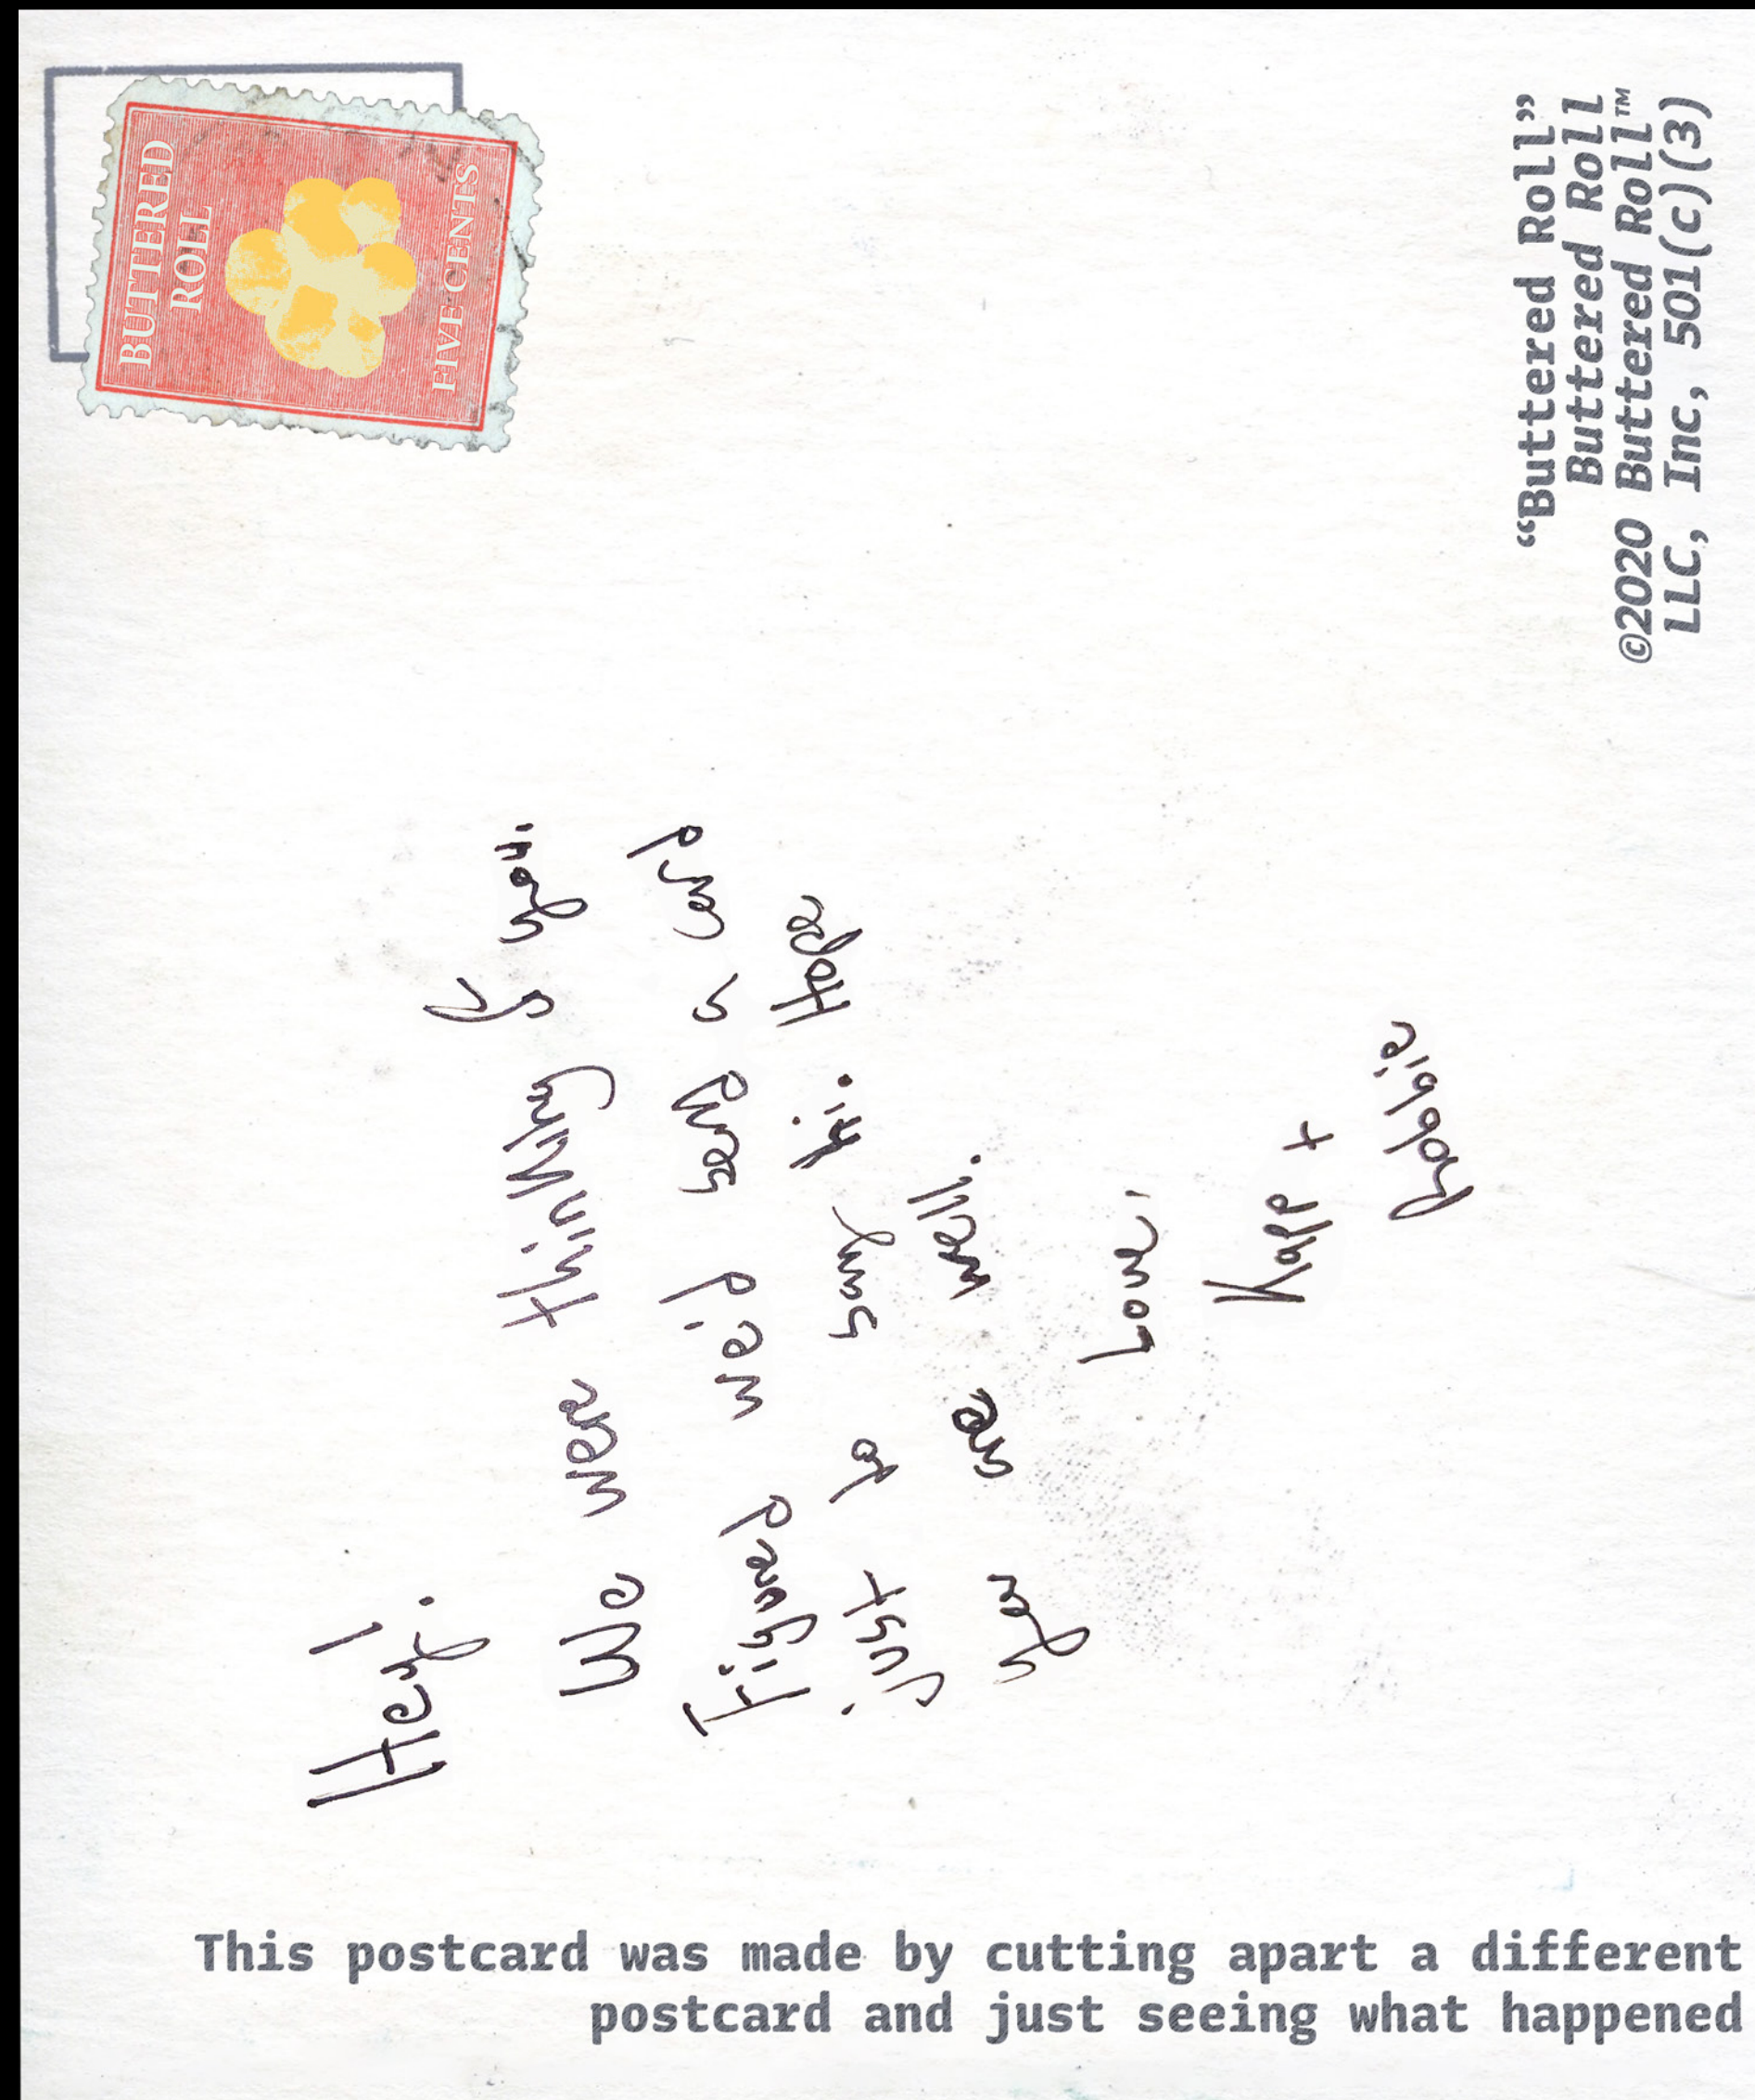 BUTTERED
ROLL
FIVE CENTS
“Buttered Roll”
Buttered Roll
©2020 Buttered Roll™
LLC, Inc, 501(c)(3)
Hey!
We were thinking of you.
Figured we'd send a card
just to say hi. Hope
you are well.
Love,
Kapp +
Robbie
This postcard was made by cutting apart a different
postcard and just seeing what happened